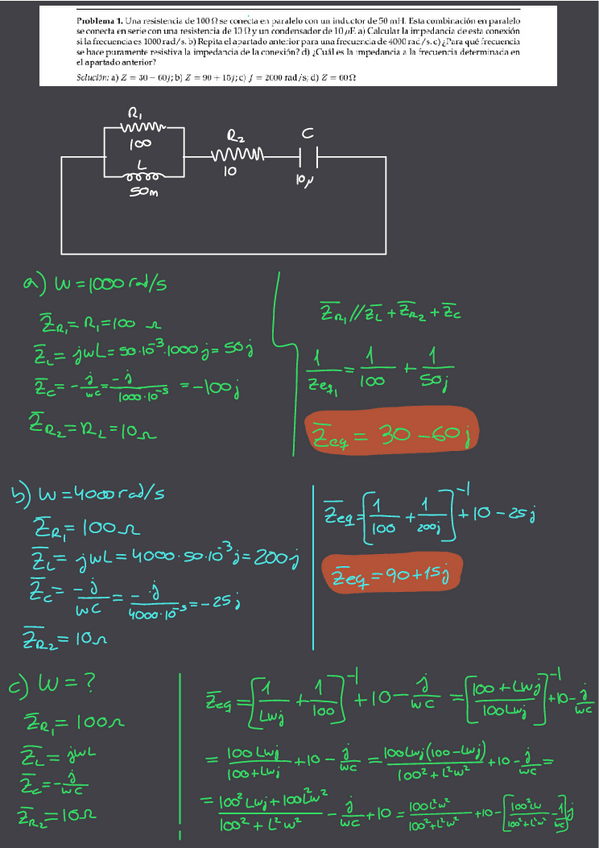 Problema 1. Una resistencia de 100 Ω se conecta en paralelo con un inductor de 50 mH. Esta combinación en paralelo
se conecta en serie con una resistencia de 10 Ω y un condensador de 10 μF. a) Calcular la impedancia de esta conexión
si la frecuencia es 1000 rad/s. b) Repita el apartado anterior para una frecuencia de 4000 rad/s. c) ¿Para qué frecuencia
se hace puramente resistiva la impedancia de la conexión? d) ¿Cuál es la impedancia a la frecuencia determinada en
el apartado anterior?
Solución: a) Z = 30 − 60j; b) Z = 90 + 15j; c) f = 2000 rad/s; d) Z = 60 Ω
R₁
100
L
50m
R₂
10
C
10μ
a) W = 1000 rad/s
Z̅R₁ = R₁ = 100 Ω
Z̅L = jwL = 50·10⁻³·1000j = 50j
Z̅c = -j/wc = -j/1000·10⁻⁵ = -100j
Z̅R₂ = R₂ = 10Ω
Z̅R₁//Z̅L + Z̅R₂ + Z̅c
1/Zeq₁ = 1/100 + 1/50j
Z̅eq = 30 - 60j
b) W = 4000 rad/s
Z̅R₁ = 100Ω
Z̅L = jwL = 4000·50·10⁻³j = 200j
Z̅c = -j/WC = -j/4000·10⁻⁵ = -25j
Z̅R₂ = 10Ω
Z̅eq = [1/100 + 1/200j]⁻¹ + 10 - 25j
Z̅eq = 90 + 15j
c) W = ?
Z̅R₁ = 100Ω
Z̅L = jwL
Z̅c = -j/wc
Z̅R₂ = 10Ω
Z̅eq = [1/Lwj + 1/100]⁻¹ + 10 - j/wc = [100 + Lwj/100Lwj]⁻¹ + 10 - j/wc
= 100Lwj/100+Lwj + 10 - j/wc = 100Lwj(100-Lwj)/100² + L²w² + 10 - j/wc =
= 100²Lwj + 100L²w²/100² + L²w² - j/wc + 10 = 100L²w²/100²+L²w² + 10 - [100²Lw/100²+L²w² - 1/wc]j